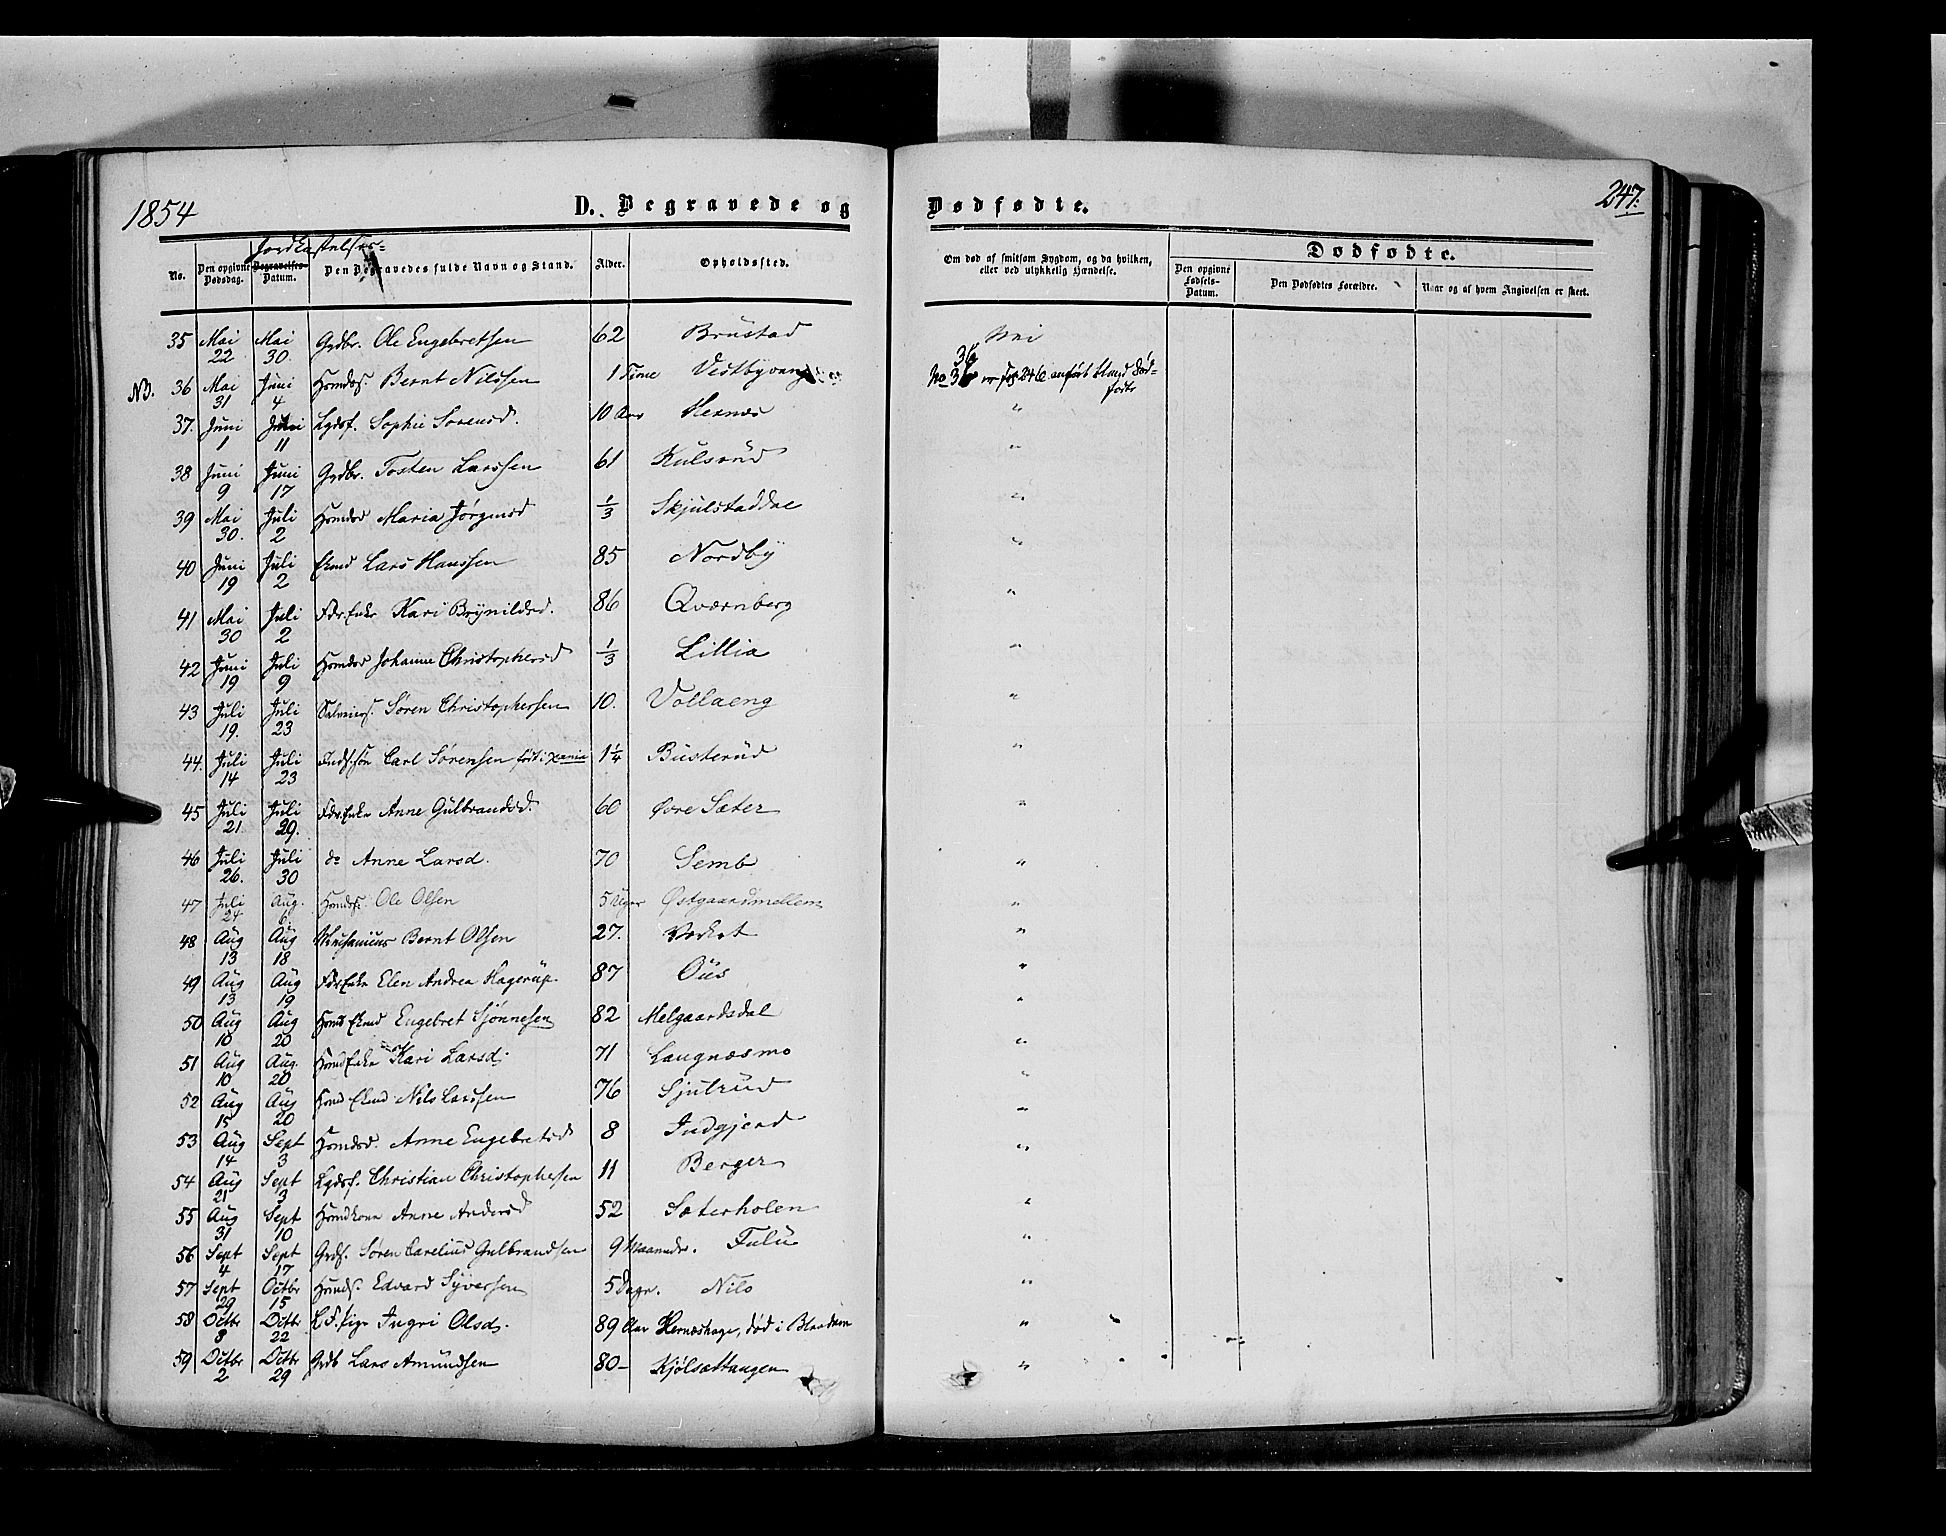 1854
D. Begravede og
Dødfødte.
247.
Jordkastelses-
No.
Den opgivne Dødsdag.
Begravelses-Datum.
Den Begravedes fulde Navn og Stand.
Alder.
Opholdssted.
Om død af smitsom Sygdom, og da hvilken, eller ved ulykkelig Hændelse.
Dødfødte.
Den opgivne Fødsels-Datum.
Den Dødfødtes Forældre.
Naar og af hvem Angivelsen er skeet.
35 Mai 22 Mai 30. Grdbr. Ole Engebretsen 62 Brustad Nei
NB. 36 Mai 31 Juni 4 Hsmds. Bernt Nilssen 1 Time Vestbyvang No 36 er Fol 246 anført blandt Dødfødte
37. Juni 1 Juni 11 Lgdsf. Sophie Sorensd. 10 Aar Hernæs "
38 Juni 9 Juni 17 Grdbr. Tosten Larssen 61 Kulsrud "
39 Mai 30. Juli 2 Hsmdsd Maria Jørgensd 1/3 Skjulstaddal "
40 Juni 19 Juli 2 Lars Hanssen 85 Nordby "
41 Mai 30 Juli 2 Fdr. Enke Kari Brynildsd. 86 Qværnberg "
42 Juni 19 Juli 9 Hsmdsd Johanne Christophersd 1/3 Lillia "
43 Juli 19. Juli 23 Søren Christophersen 10. Vollaeng "
44. Juli 14 Juli 23 Inds. søn Carl Sørensen født i Xania 1 1/4 Busterud "
45 Juli 21 Juli 29. Fdr. Enke Anne Gulbrandsd. 60 Øvre Sæter "
46 Juli 26. Juli 30 do Anne Larsd. 70 Semb "
47 Juli 24 Aug. 6 Hsmds. Ole Olsen 5 Uger Østgaardmellem "
48 Aug 13 Aug 18 Bernt Olsen 27. "
49 Aug 13 Aug 19 Fdr. Enke Elen Andrea Hagerup. 87 Ous "
50 Aug 10 Aug 20 Engebret Sjønnesen 82 Melgaardsdal "
51 Aug 10 Aug. 20 Hsmd Enke Kari Larsd. 71 Laugnæsmo "
52 Aug 15 Aug 20 Nils Larssen 76 Sjulrud "
53 Aug 14 Sept 3 Hsmdsd. Anne Engebretsd 8 Indgjerd "
54 Aug 21 Sept 3 Lgdsf. Christian Christophersen 11 Berger "
55 Aug 31 Sept 10 Hsmdkone Anne Andersd 52 Sæterholen "
56 Sept 4 Sept 17 Grds. Søren Carelius Gulbrandsen 9 Maaneder. Fulu "
57 Sept 29 Octbr 15 Hsmds. Edvard Syversen 5 Dage. Nilo "
58 Octbr 8 Octbr 22 Ingri Olsd. 89 Aar Hernæshage, død i Blaadom "
59 Octbr 2 Octbr 29 Grdb Lars Amundsen 80- Kjølsættangen "